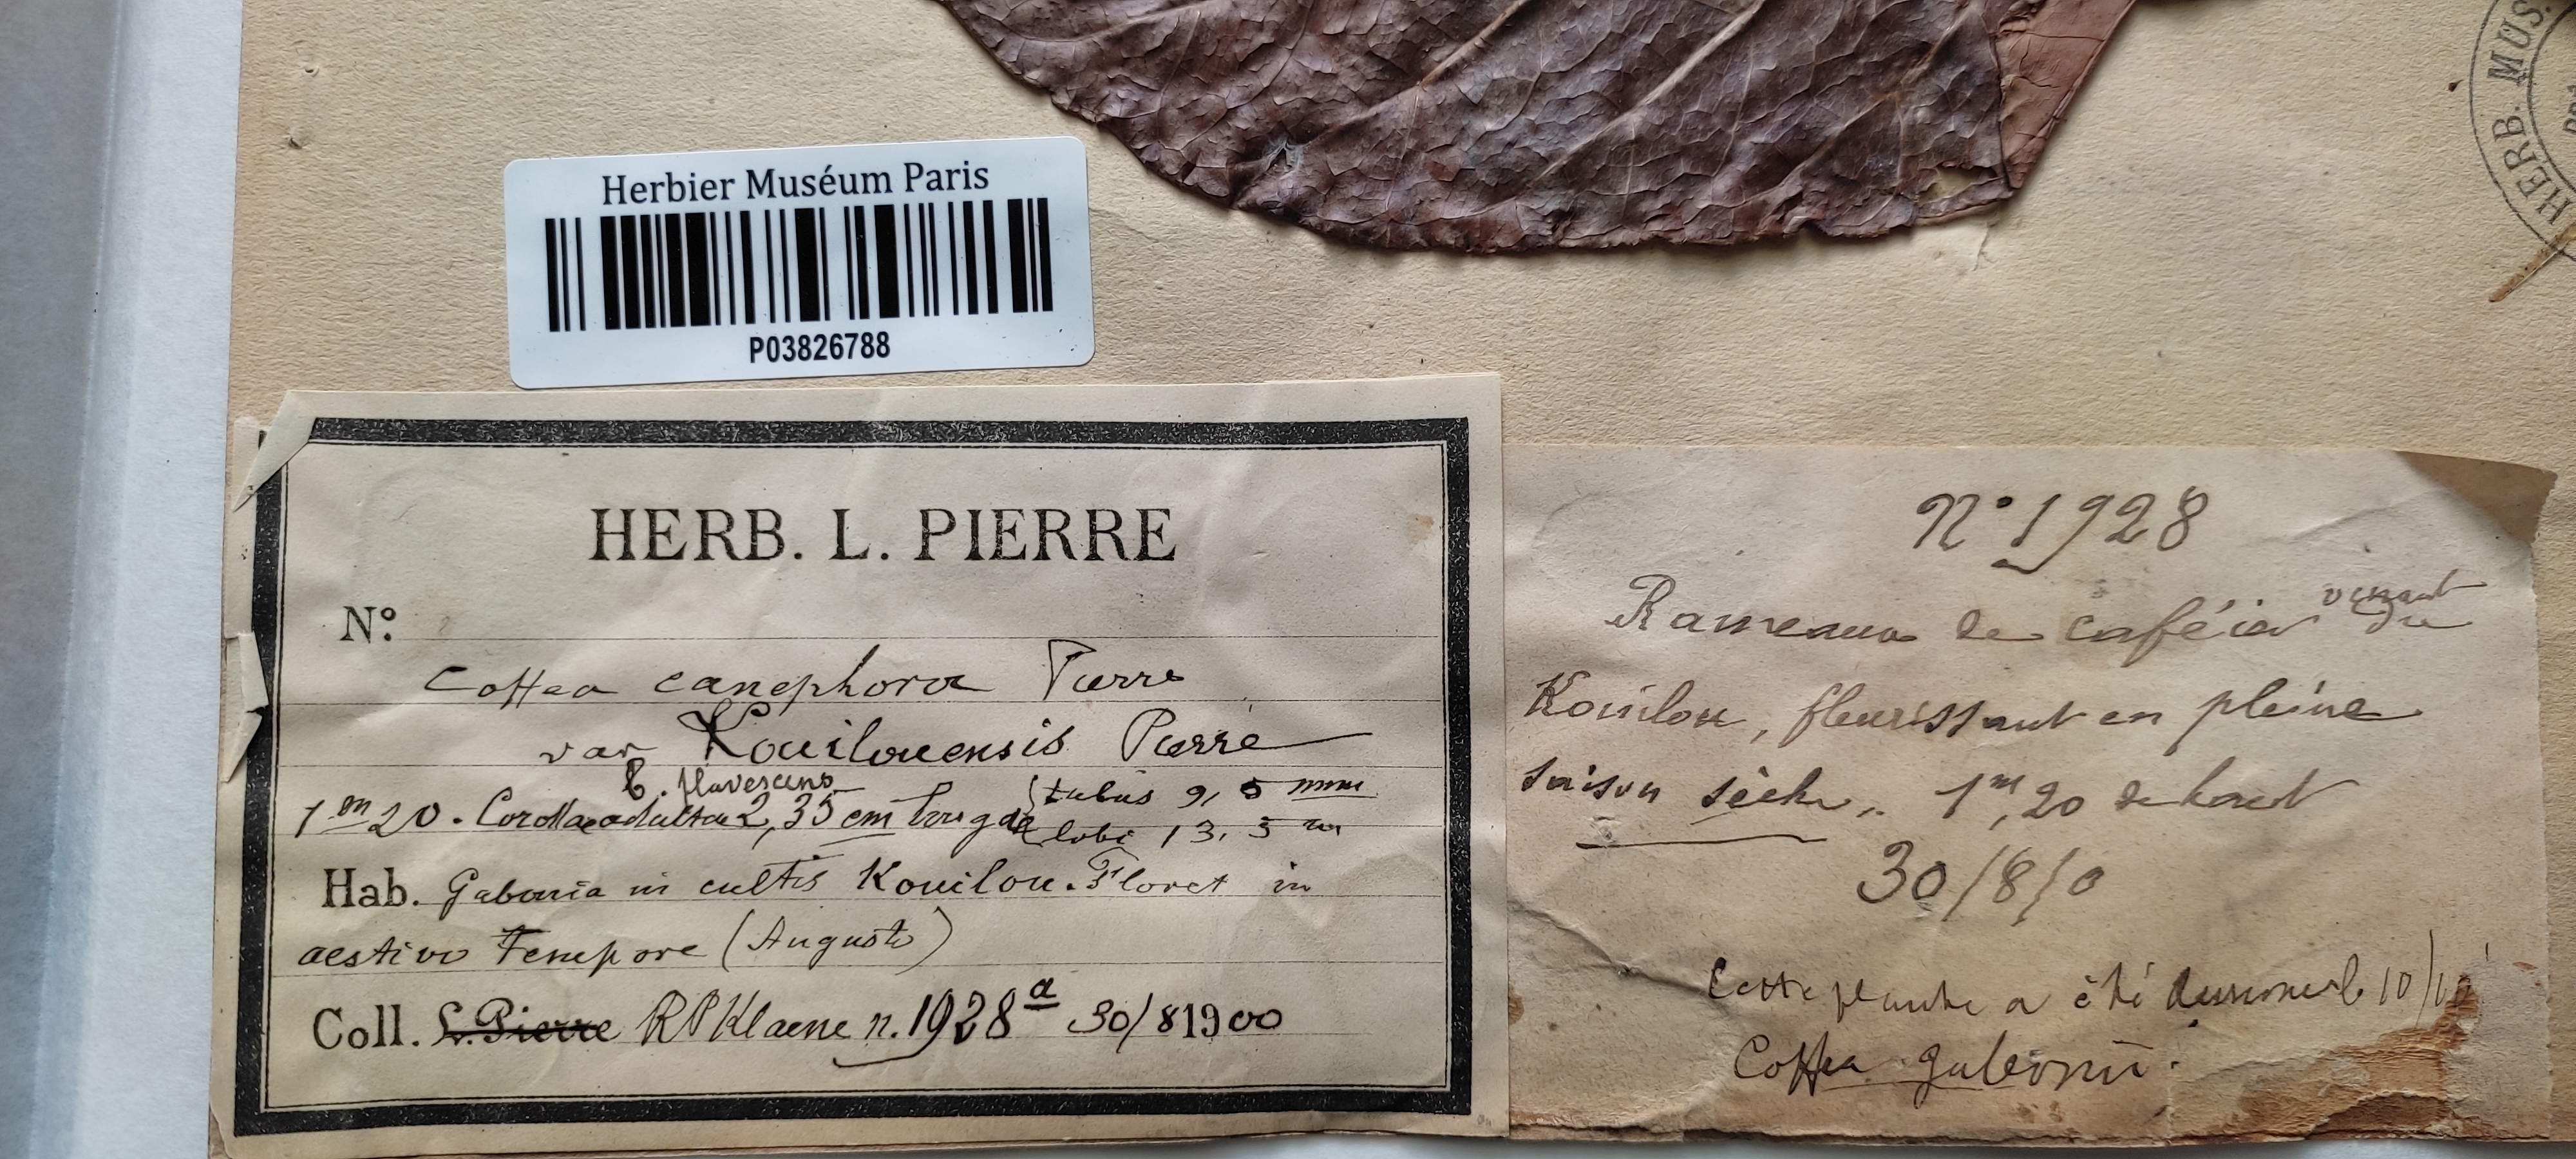 HERB. MUS.
Herbier Muséum Paris
P03826788
HERB. L. PIERRE
N°:
Coffea canephora Pierre
var Kouilouensis Pierre
β. flavescens
1m20. Corolla adulta 2,35 cm longa tubus 9, 5 mm
lobi 13, 5 m
Hab. Gabonia in cultis Kouilou. Floret in
aestivo Tempore (Augusto)
Coll. L. Pierre RP Klaene n. 1928a 30/8 1900
N° 1928
Rameaux de caféier venant du
Kouilou, fleurissant en pleine
saison sèche,. 1m,20 de haut
30/8/0
Cette plante a été 10/
Coffea